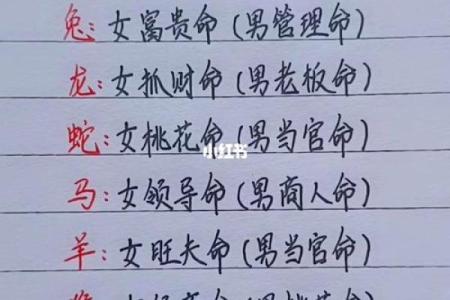 兔:女富贵命(男管理命)
龙:女抓财命(男老板命)
蛇:女桃花命(男当官命)
小红书
马:女领导命(男商人命)
羊:女旺夫命(男当官命)